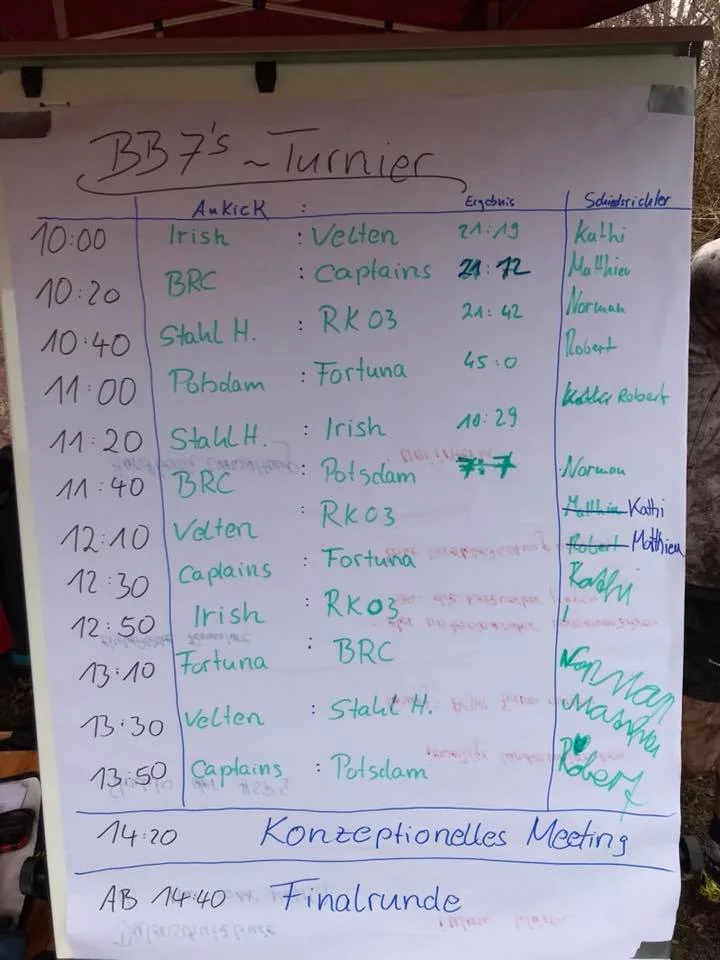 BB7's ~ Turnier
Ankick : Ergebnis Schiedsrichter
10:00 Irish : Velten 21:19 Kathi
10:20 BRC : Captains 21:12 Matthieu
10:40 Stahl H. : RK03 21:42 Norman
11:00 Potsdam : Fortuna 45:0 Robert
11:20 Stahl H. : Irish 10:29 Robert
11:40 BRC : Potsdam 7:7 Norman
12:10 Velten : RK03 Matthieu Kathi
12:30 Captains : Fortuna Robert Matthieu
12:50 Irish : RK03 Kathi !
13:10 Fortuna : BRC Norman
13:30 Velten : Stahl H. Matthieu
13:50 Captains : Potsdam Robert
14:20 Konzeptionelles Meeting
AB 14:40 Finalrunde